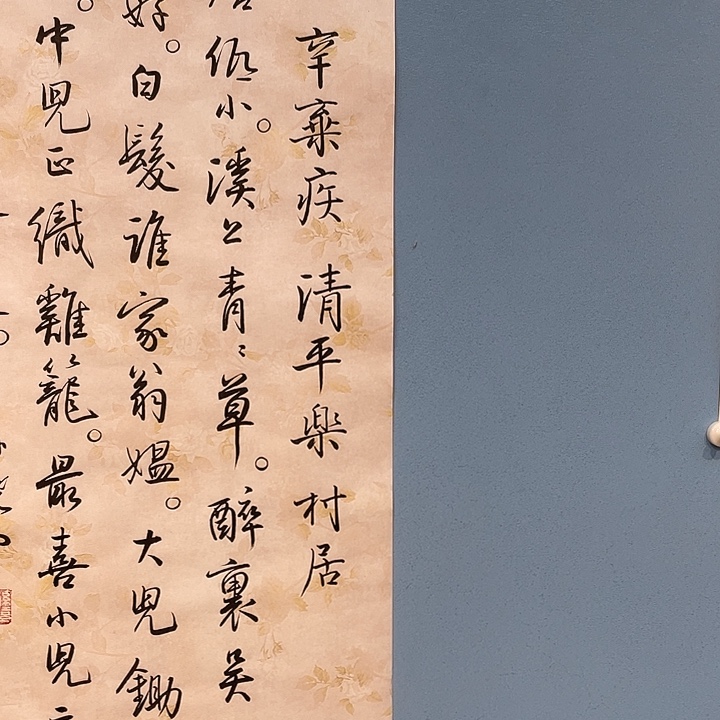 辛棄疾 清平樂 村居
低小。溪上青〻草。醉裏吳
好。白髮誰家翁媼。大兒鋤
中兒正織雞籠。最喜小兒